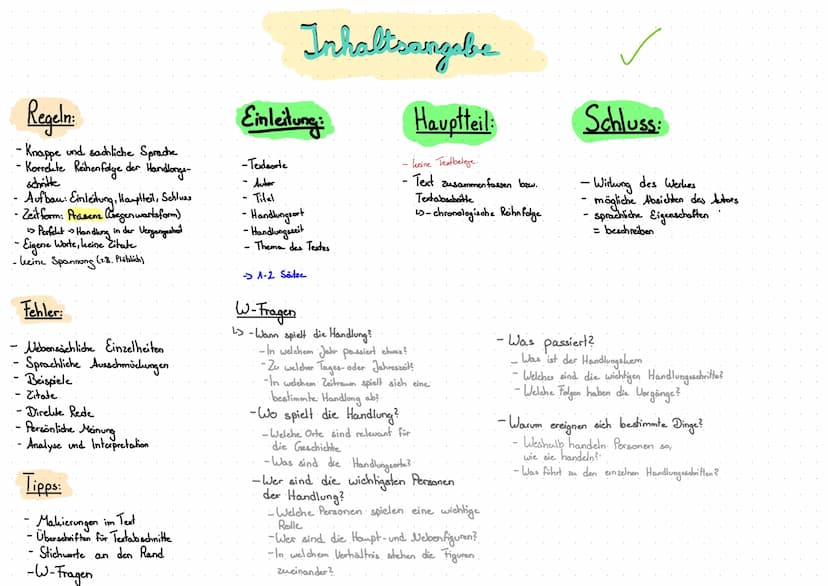 Inhaltsangabe
Regeln:
- Knappe und sachliche Sprache
- Korrekte Reihenfolge der Handlungs-
schritte
- Aufbau: Einleitung, Hauptteil, Schluss
- Zeitform: Präsens (Gegenwartsform)
↳ Perfekt → Handlung in der Vergangenheit
- Eigene Worte, keine Zitate
- keine Spannung (z.B. Plötzlich)
Fehler:
- Nebensächliche Einzelheiten
- Sprachliche Ausschmückungen
- Beispiele
- Zitate
- Direkte Rede
- Persönliche Meinung
- Analyse und Interpretation
Tipps:
- Makierungen im Text
- Überschriften für Textabschnitte
- Stichworte an den Rand
- W-Fragen
Einleitung:
- Textsorte
- Autor
- Titel
- Handlungsort
- Handlungszeit
- Thema des Textes
→ 1-2 Sätze
Hauptteil:
- keine Textbelege
- Text zusammenfassen bzw.
Textabschnitte
↳ - chronologische Reihnfolge
Schluss:
- Wirkung des Werkes
- mögliche Absichten des Autors
- sprachliche Eigenschaften
= beschreiben
W-Fragen
↳ - Wann spielt die Handlung?
- In welchem Jahr passiert etwas?
- Zu welcher Tages- oder Jahreszeit?
- In welchem Zeitraum spielt sich eine
bestimmte Handlung ab?
- Wo spielt die Handlung?
- Welche Orte sind relevant für
die Geschichte
- Was sind die Handlungsorte?
- Wer sind die wichtigsten Personen
der Handlung?
- Welche Personen spielen eine wichtige
Rolle
- Wer sind die Haupt- und Nebenfiguren?
- In welchem Verhältnis stehen die Figuren
zueinander?
- Was passiert?
- Was ist der Handlungskern
- Welches sind die wichtigen Handlungsschritte?
- Welche Folgen haben die Vorgänge?
- Warum ereignen sich bestimmte Dinge?
- Weshalb handeln Personen so,
wie sie handeln?
- Was führt zu den einzelnen Handlungsschritten?